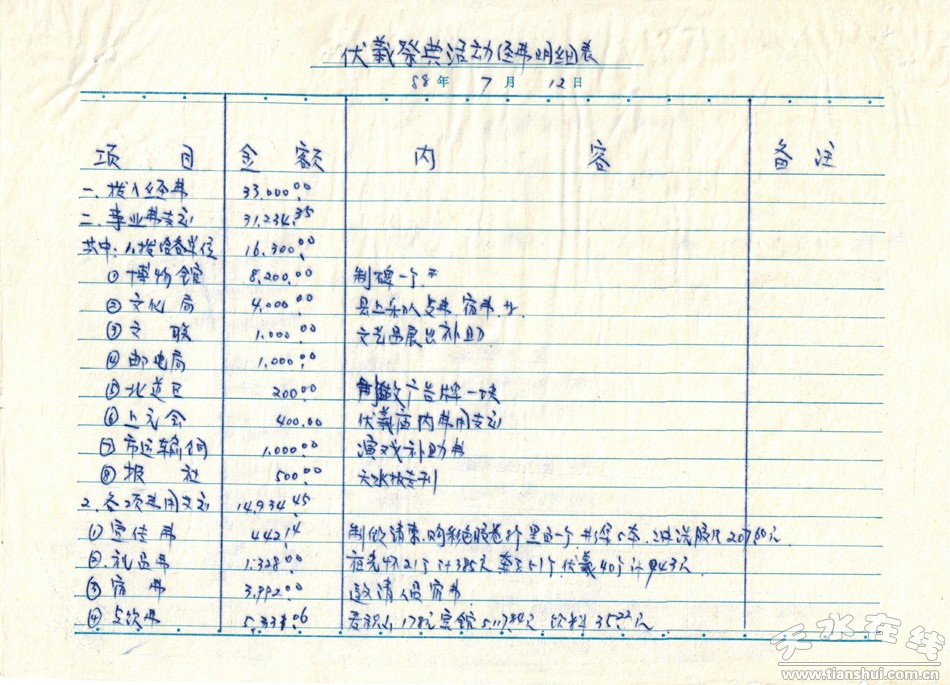 伏羲祭典活动经费明细表
88年7月12日
项目 金额 内容 备注
一、拨入经费 33,000.00
二、事业费支出 31,234.35
其中:1、拨给各单位 16,300.00
①博物馆 8,200.00 制碑一个
②文化局 4,000.00 宿费
③文联 1,000.00 文艺品展出补助
④邮电局 1,000.00
⑤北道区 200.00 制做广告牌一块
⑥上元会 400.00 伏羲庙内费用支出
⑦市运输公司 1,000.00 演戏补助费
⑧报社 500.00 天水报专刊
2、各项费用支出 14,934.45
①宣传费 442.14 制做请柬、购彩色胶卷
②礼品费 1,328.00 21个计385元 51个伏羲40个计943元
③宿费 3,992.00 邀请人员宿费
④餐饮费 麦积山178元宾馆 饮料35.22元
天水在线
www.tianshui.com.cn